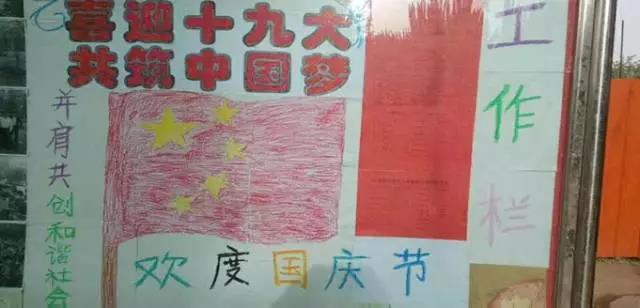 喜迎十九大
共筑中国梦
工作栏
并肩共创和谐社会
欢度国庆节